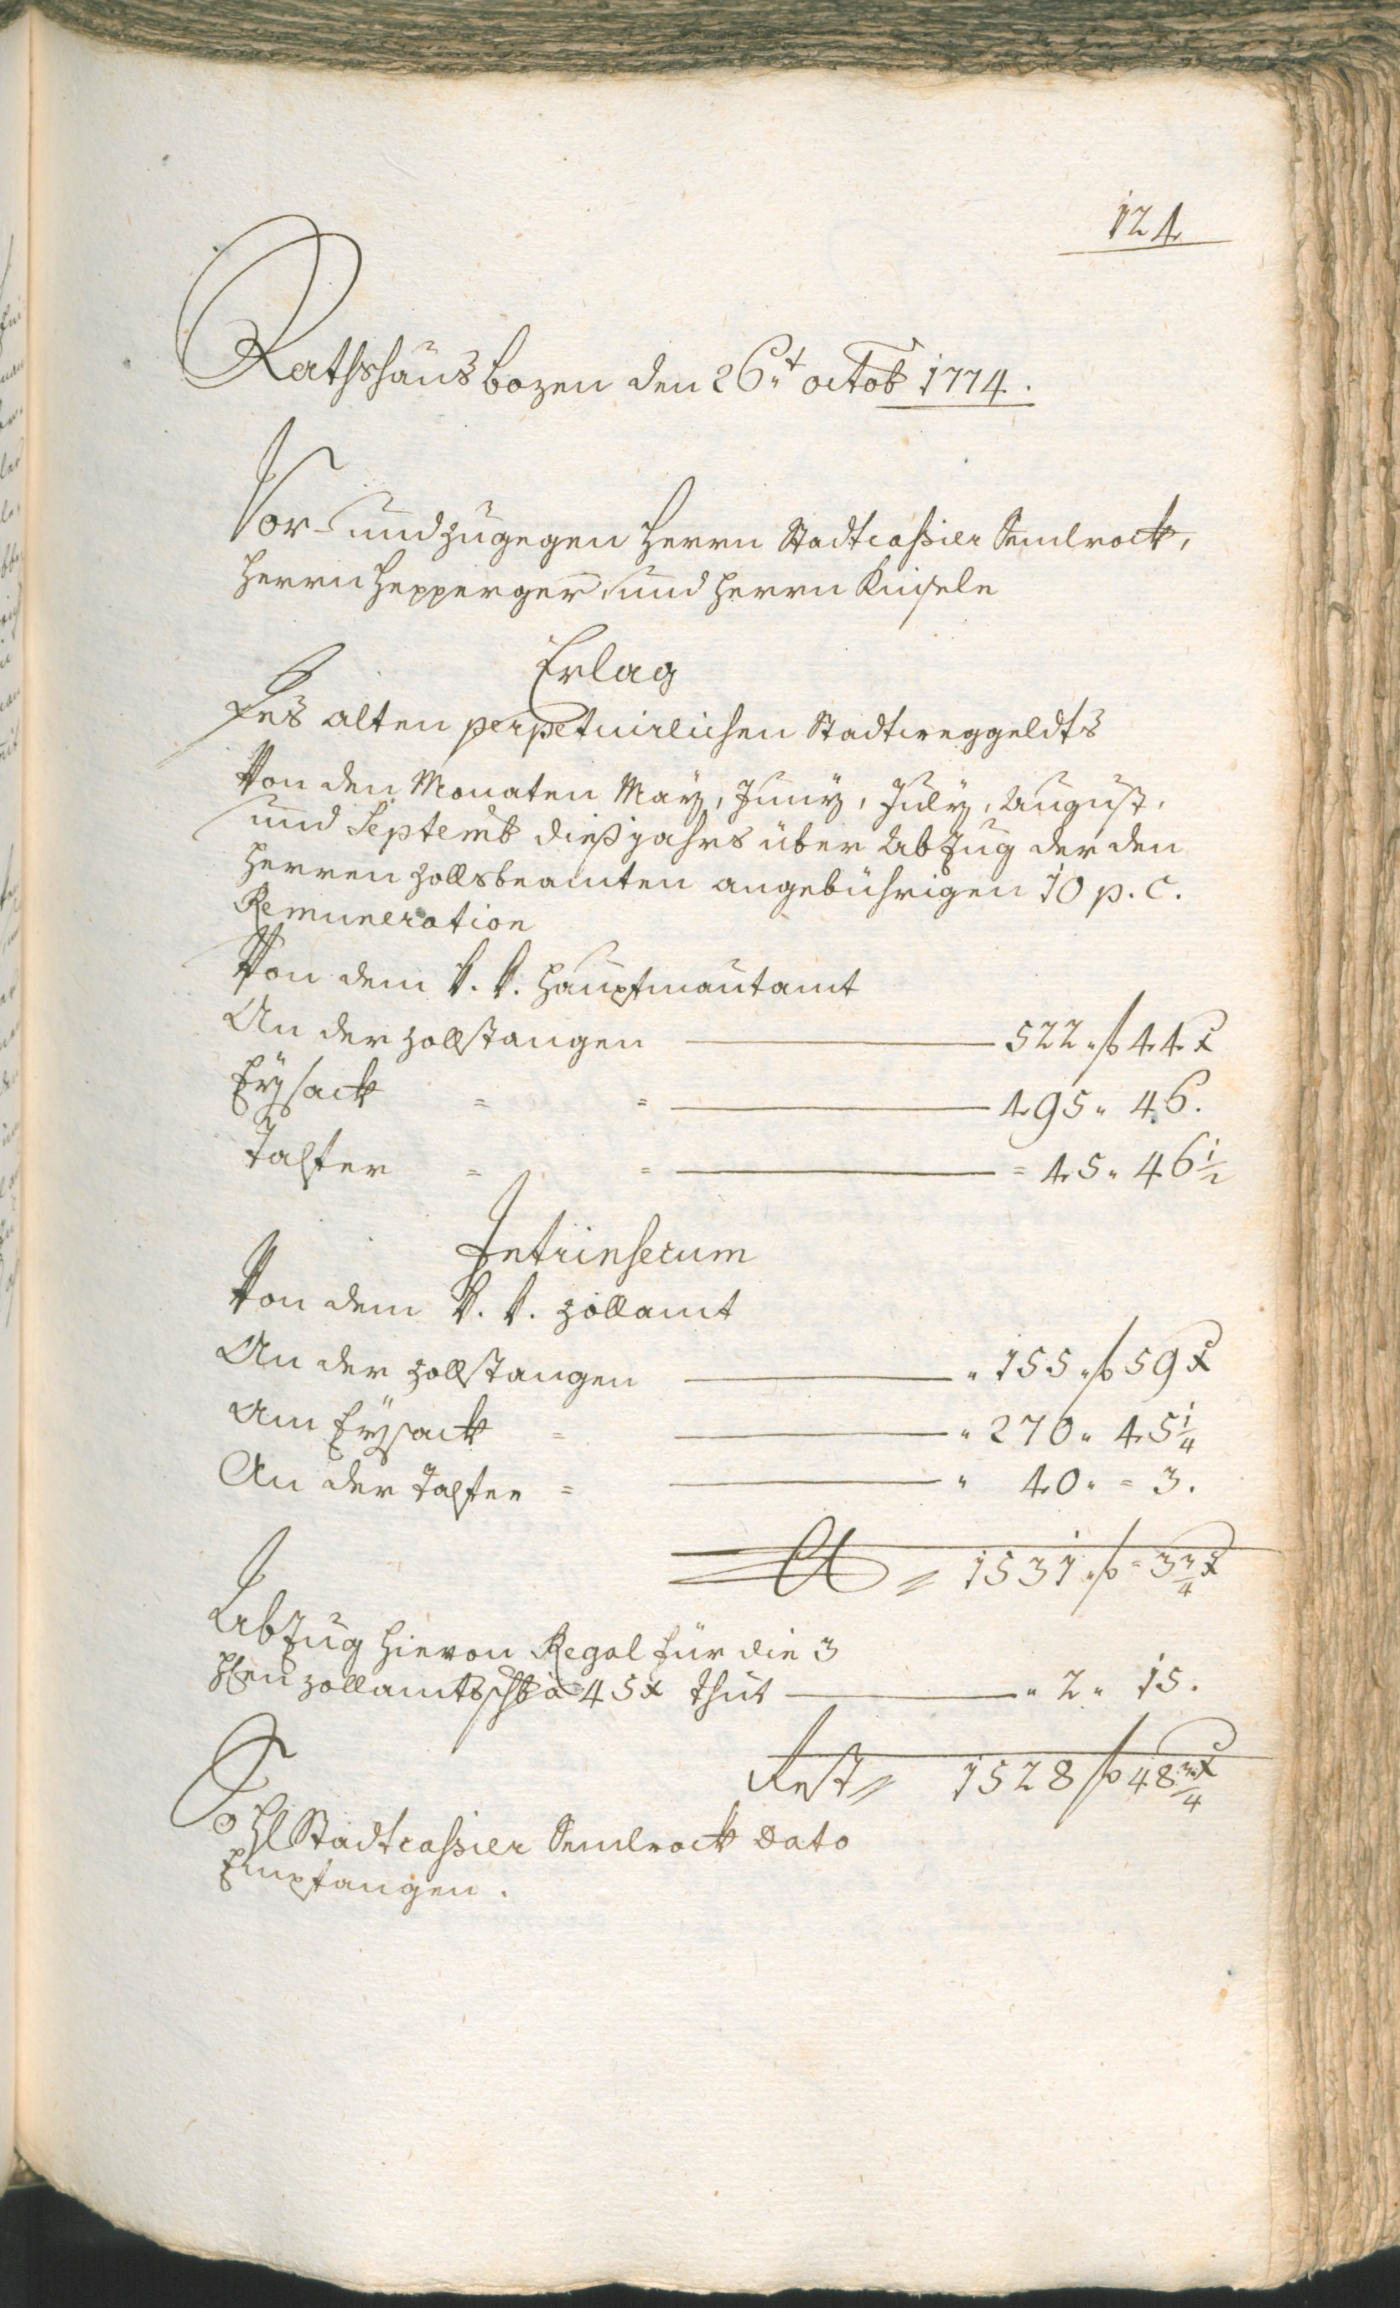 124
Rathshaus bozen den 26.t octob 1774.
Vor- und zugegen Herrn Stadtcassier Semlrock,
Herrn Hepperger, und Herrn Kuisele
Erlag
Des alten perpetuirlichen Stadtweggeldts
Von den Monaten May, Juny, July, August,
und Septemb dießjahrs über Abzug der den
Herren Zollsbeamten angebührigen 10 p. C.
Remuneration
Von dem k. k. Hauptmautamt
An der Zollstangen — 522 „ f 44 x
Eysack = = — 495 „ 46.
Talfer = = — = 45 „ 46 1/2
Intrinsecum
Von dem k. k. Zollamt
An der Zollstangen — „ 155 „ f 59 x
Am Eysack = — „ 270 „ 45 1/4
An der Talfer = — „ 40 „ = 3.
= 1531 „ f = 3 3/4 x
Abzug hievon Regal für die 3
Hen Zollamts à 45 x thut — „ 2 „ 15.
Rest = 1528 f 48 3/4 x
So Hl Stadtcassier Semlrock Dato
Empfangen.